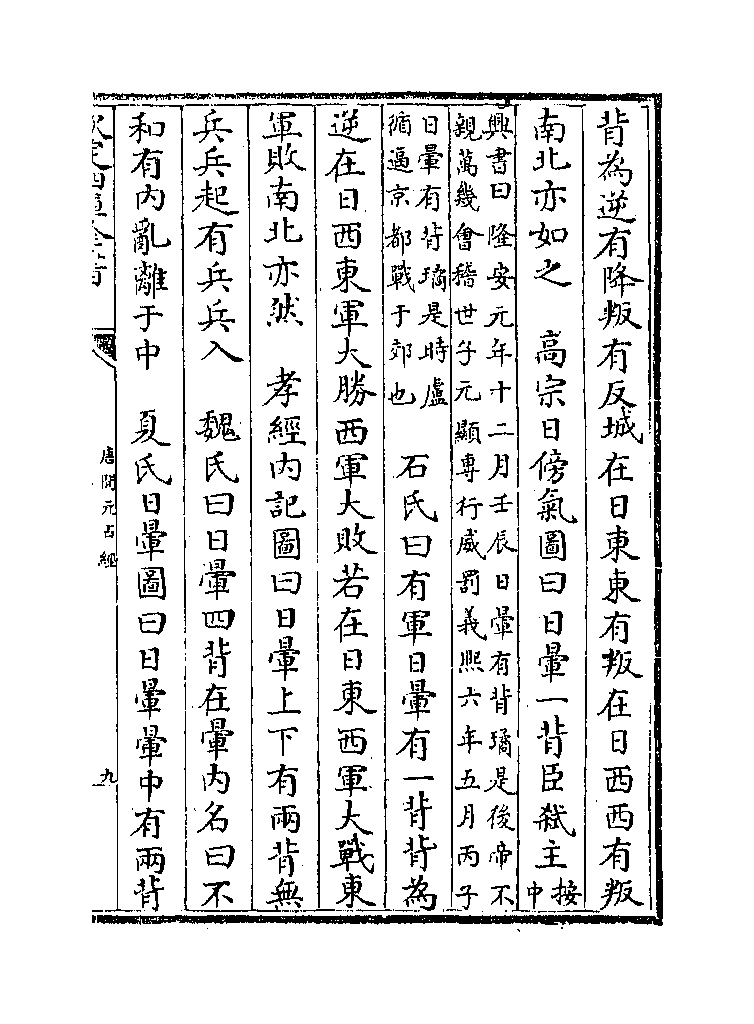 背為逆有降叛有反城在日東東有叛在日西西有叛
南北亦如之　高宗日傍氣圖曰日暈一背臣弑主按
中
興書曰隆安元年十二月壬辰日暈有背璚是後帝不
親萬幾會稽世子元顯専行威罰義熙六年五月丙子
日暈有背璚是時盧
循逼京都戰于郊也
石氏曰有軍日暈有一背背為
逆在日西東軍大勝西軍大敗若在日東西軍大戰東
軍敗南北亦然　孝經內記圖曰日暈上下有兩背無
兵兵起有兵兵入　魏氏曰日暈四背在暈內名曰不
和有內亂離于中　夏氏日暈圖曰日暈暈中有兩背
欽定四庫全書
唐開元占經
九